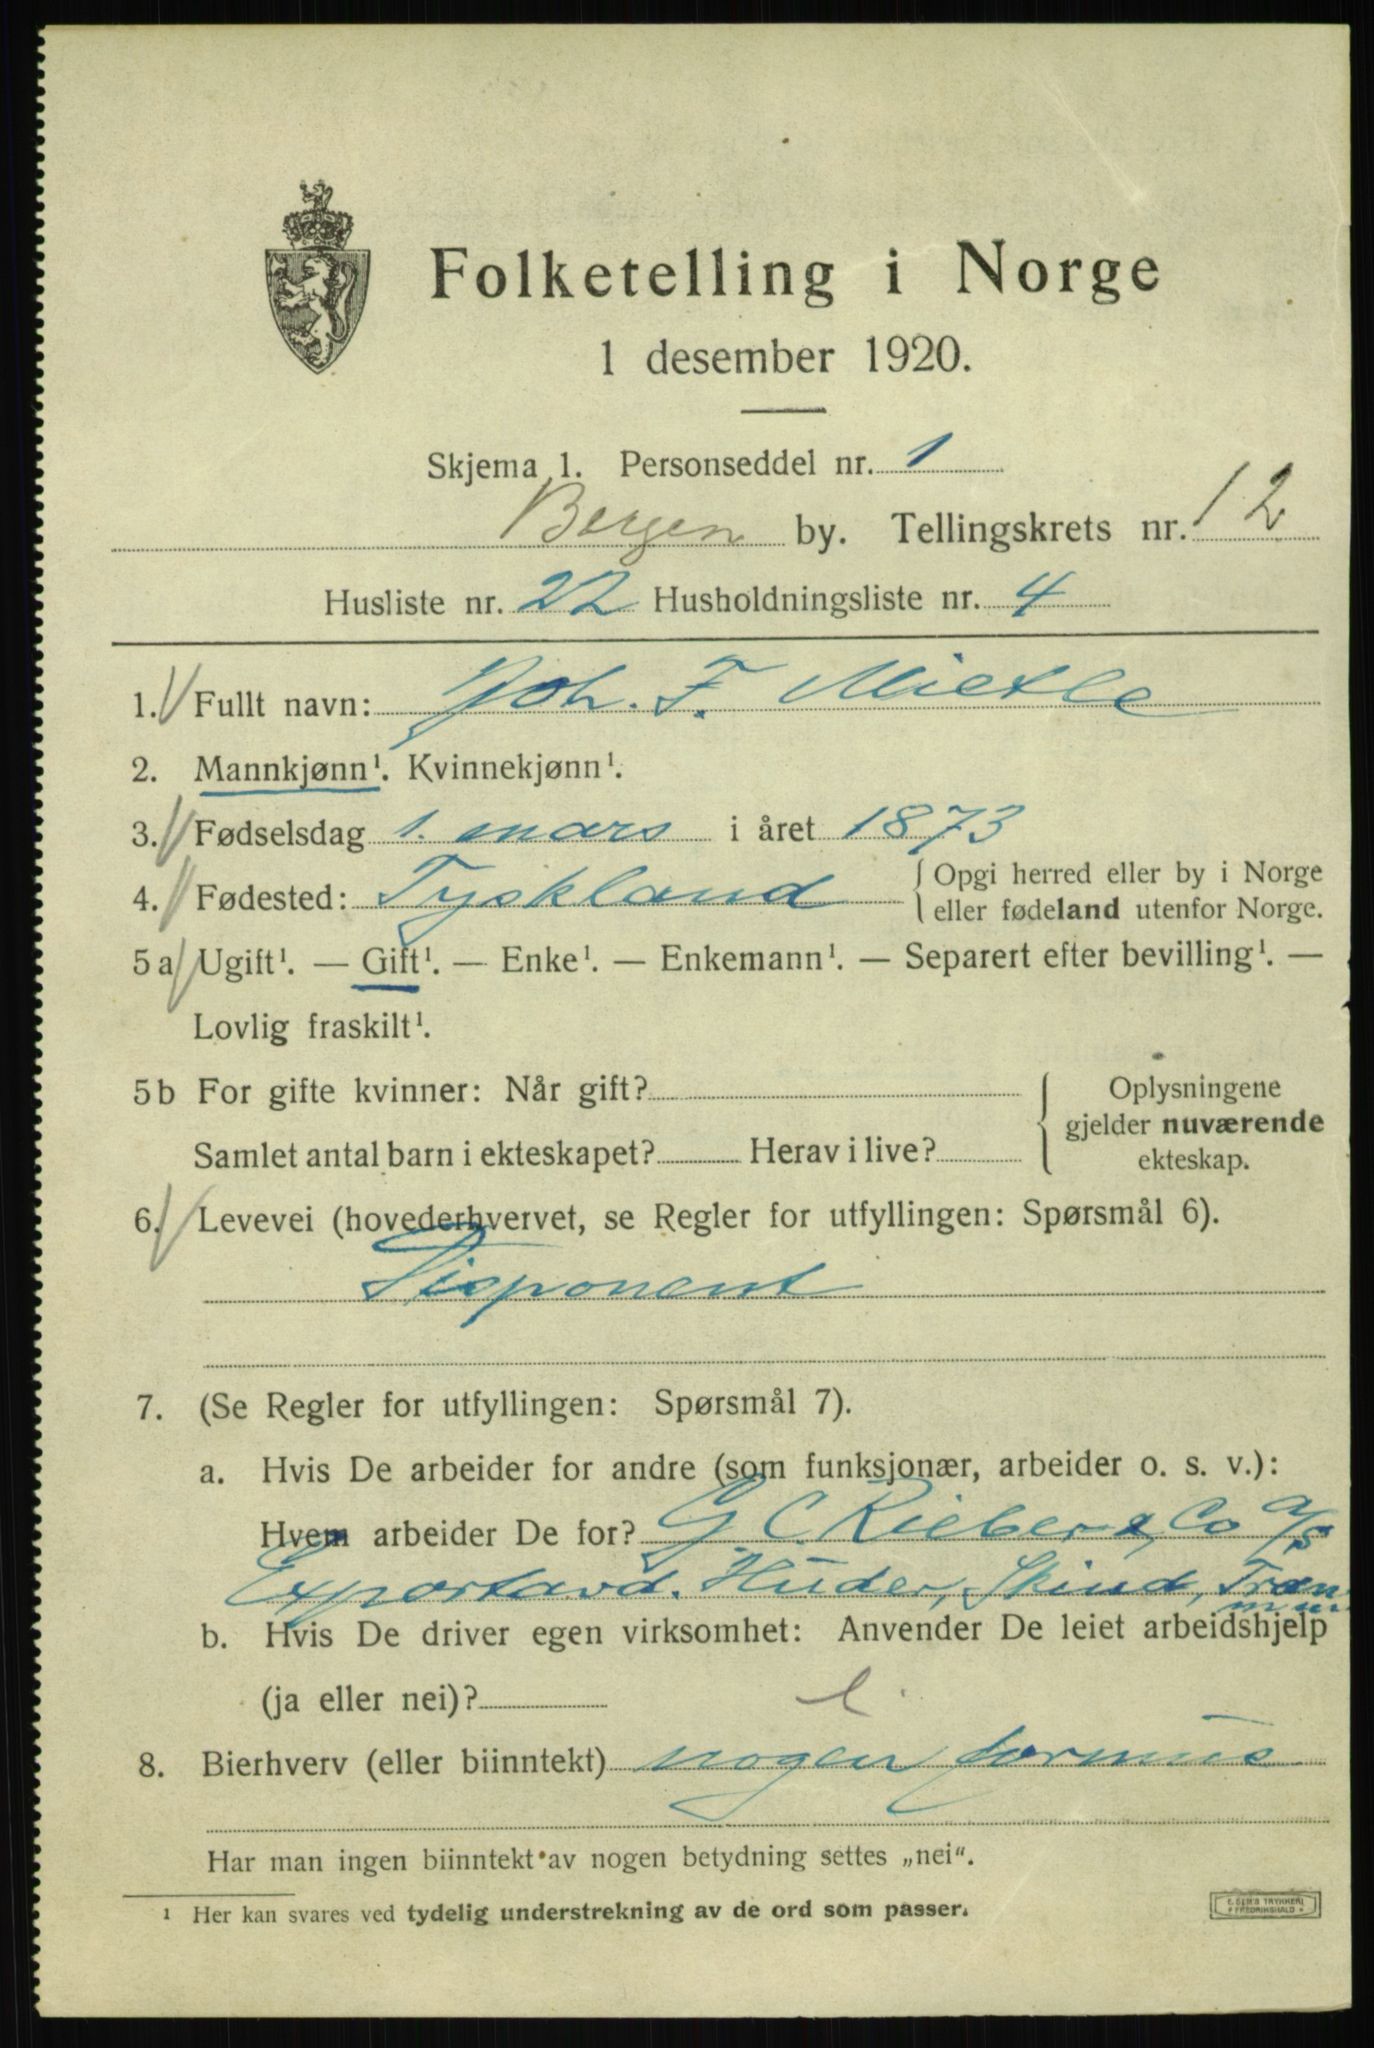 Folketelling i Norge
1 desember 1920.
Skjema 1. Personseddel nr. 1
Bergen by. Tellingskrets nr. 12
Husliste nr. 22 Husholdningsliste nr. 4
1. Fullt navn: Joh. F. Mietle
2. Mannkjønn¹. Kvinnekjønn¹.
3. Fødselsdag 1. mars i året 1873
4. Fødested: Tyskland { Opgi herred eller by i Norge
eller fødeland utenfor Norge.
5a Ugift¹. — Gift¹. — Enke¹. — Enkemann¹. — Separert efter bevilling¹. —
Lovlig fraskilt¹.
5b For gifte kvinner: Når gift? { Oplysningene
gjelder nuværende
Samlet antal barn i ekteskapet? Herav i live? ekteskap.
6. Levevei (hovederhvervet, se Regler for utfyllingen: Spørsmål 6).
Disponent
7. (Se Regler for utfyllingen: Spørsmål 7).
a. Hvis De arbeider for andre (som funksjonær, arbeider o. s. v.):
Hvem arbeider De for? G. C. Rieber & Co a/s
Exportavd. Huder, Skind, Tran
b. Hvis De driver egen virksomhet: Anvender De leiet arbeidshjelp
(ja eller nei)?
8. Bierhverv (eller biinntekt) nogen formue
Har man ingen biinntekt av nogen betydning settes „nei".
¹ Her kan svares ved tydelig understrekning av de ord som passer.